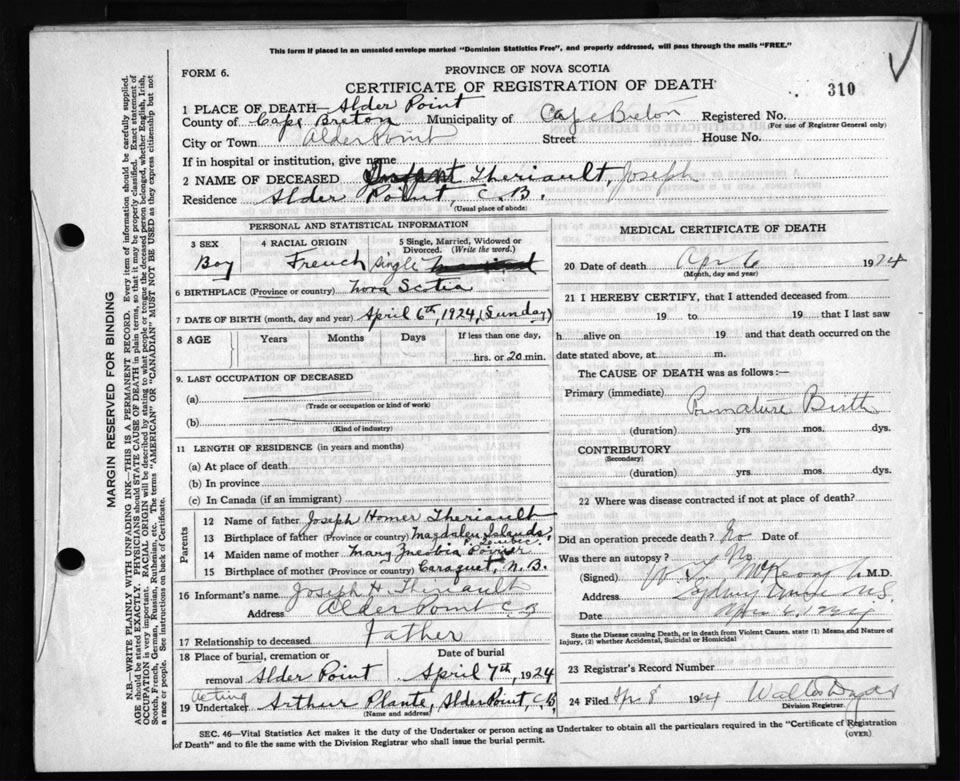 This form if placed in an unsealed envelope marked "Dominion Statistics Free", and properly addressed, will pass through the mails "FREE."
FORM 6.
PROVINCE OF NOVA SCOTIA
CERTIFICATE OF REGISTRATION OF DEATH
310
1 PLACE OF DEATH— Alder Point
County of Cape Breton Municipality of Cape Breton Registered No.
(For use of Registrar General only)
City or Town Alder Point Street House No.
If in hospital or institution, give name
2 NAME OF DECEASED Infant Theriault, Joseph
Residence Alder Point, C. B.
(Usual place of abode)
PERSONAL AND STATISTICAL INFORMATION
3 SEX 4 RACIAL ORIGIN 5 Single, Married, Widowed or Divorced. (Write the word.)
Boy French single
6 BIRTHPLACE (Province or country) Nova Scotia
7 DATE OF BIRTH (month, day and year) April 6th, 1924, (Sunday)
8 AGE Years Months Days If less than one day,
hrs. or 20 min.
9. LAST OCCUPATION OF DECEASED
(a)
(Trade or occupation or kind of work)
(b)
(Kind of industry)
11 LENGTH OF RESIDENCE (in years and months)
(a) At place of death
(b) In province
(c) In Canada (if an immigrant)
Parents
12 Name of father Joseph Homer Theriault
13 Birthplace of father (Province or country) Magdalen Islands, Quebec.
14 Maiden name of mother Mary Poirier
15 Birthplace of mother (Province or country) Caraquet, N. B.
16 Informant's name Joseph H. Theriault
Address Alder Point C B
17 Relationship to deceased Father
18 Place of burial, cremation or removal Alder Point Date of burial April 7th, 1924
Acting
19 Undertaker Arthur Plante, Alder Point, C.B
(Name and address)
MEDICAL CERTIFICATE OF DEATH
20 Date of death Apr 6 1924
(Month, day and year)
21 I HEREBY CERTIFY, that I attended deceased from
19 to 19 that I last saw
h alive on 19 and that death occurred on the
date stated above, at m.
The CAUSE OF DEATH was as follows:—
Primary (immediate)
Premature Birth
(duration) yrs. mos. dys.
CONTRIBUTORY
(Secondary)
(duration) yrs. mos. dys.
22 Where was disease contracted if not at place of death?
Did an operation precede death? No Date of
Was there an autopsy? No
(Signed) McKeon M.D.
Address Sydney Mines N.S.
Date
State the Disease causing Death, or in death from Violent Causes, state (1) Means and Nature of Injury, (2) whether Accidental, Suicidal or Homicidal
23 Registrar's Record Number
24 Filed Apr 8 1924 Walter
Division Registrar.
SEC. 46—Vital Statistics Act makes it the duty of the Undertaker or person acting as Undertaker to obtain all the particulars required in the "Certificate of Registration of Death" and to file the same with the Division Registrar who shall issue the burial permit.
(OVER)
MARGIN RESERVED FOR BINDING
N.B.—WRITE PLAINLY WITH UNFADING INK—THIS IS A PERMANENT RECORD. Every item of information should be carefully supplied.
AGE should be stated EXACTLY. PHYSICIANS should STATE CAUSE OF DEATH in plain terms, so that it may be properly classified. Exact statement of
OCCUPATION is very important. RACIAL ORIGIN will be described by stating to what people or tongue the deceased person belonged, whether English, Irish,
Scotch, French, German, Russian, Ruthenian, etc. The terms "AMERICAN" OR "CANADIAN" MUST NOT BE USED as they express citizenship but not
a race or people. See instructions on back of Certificate.